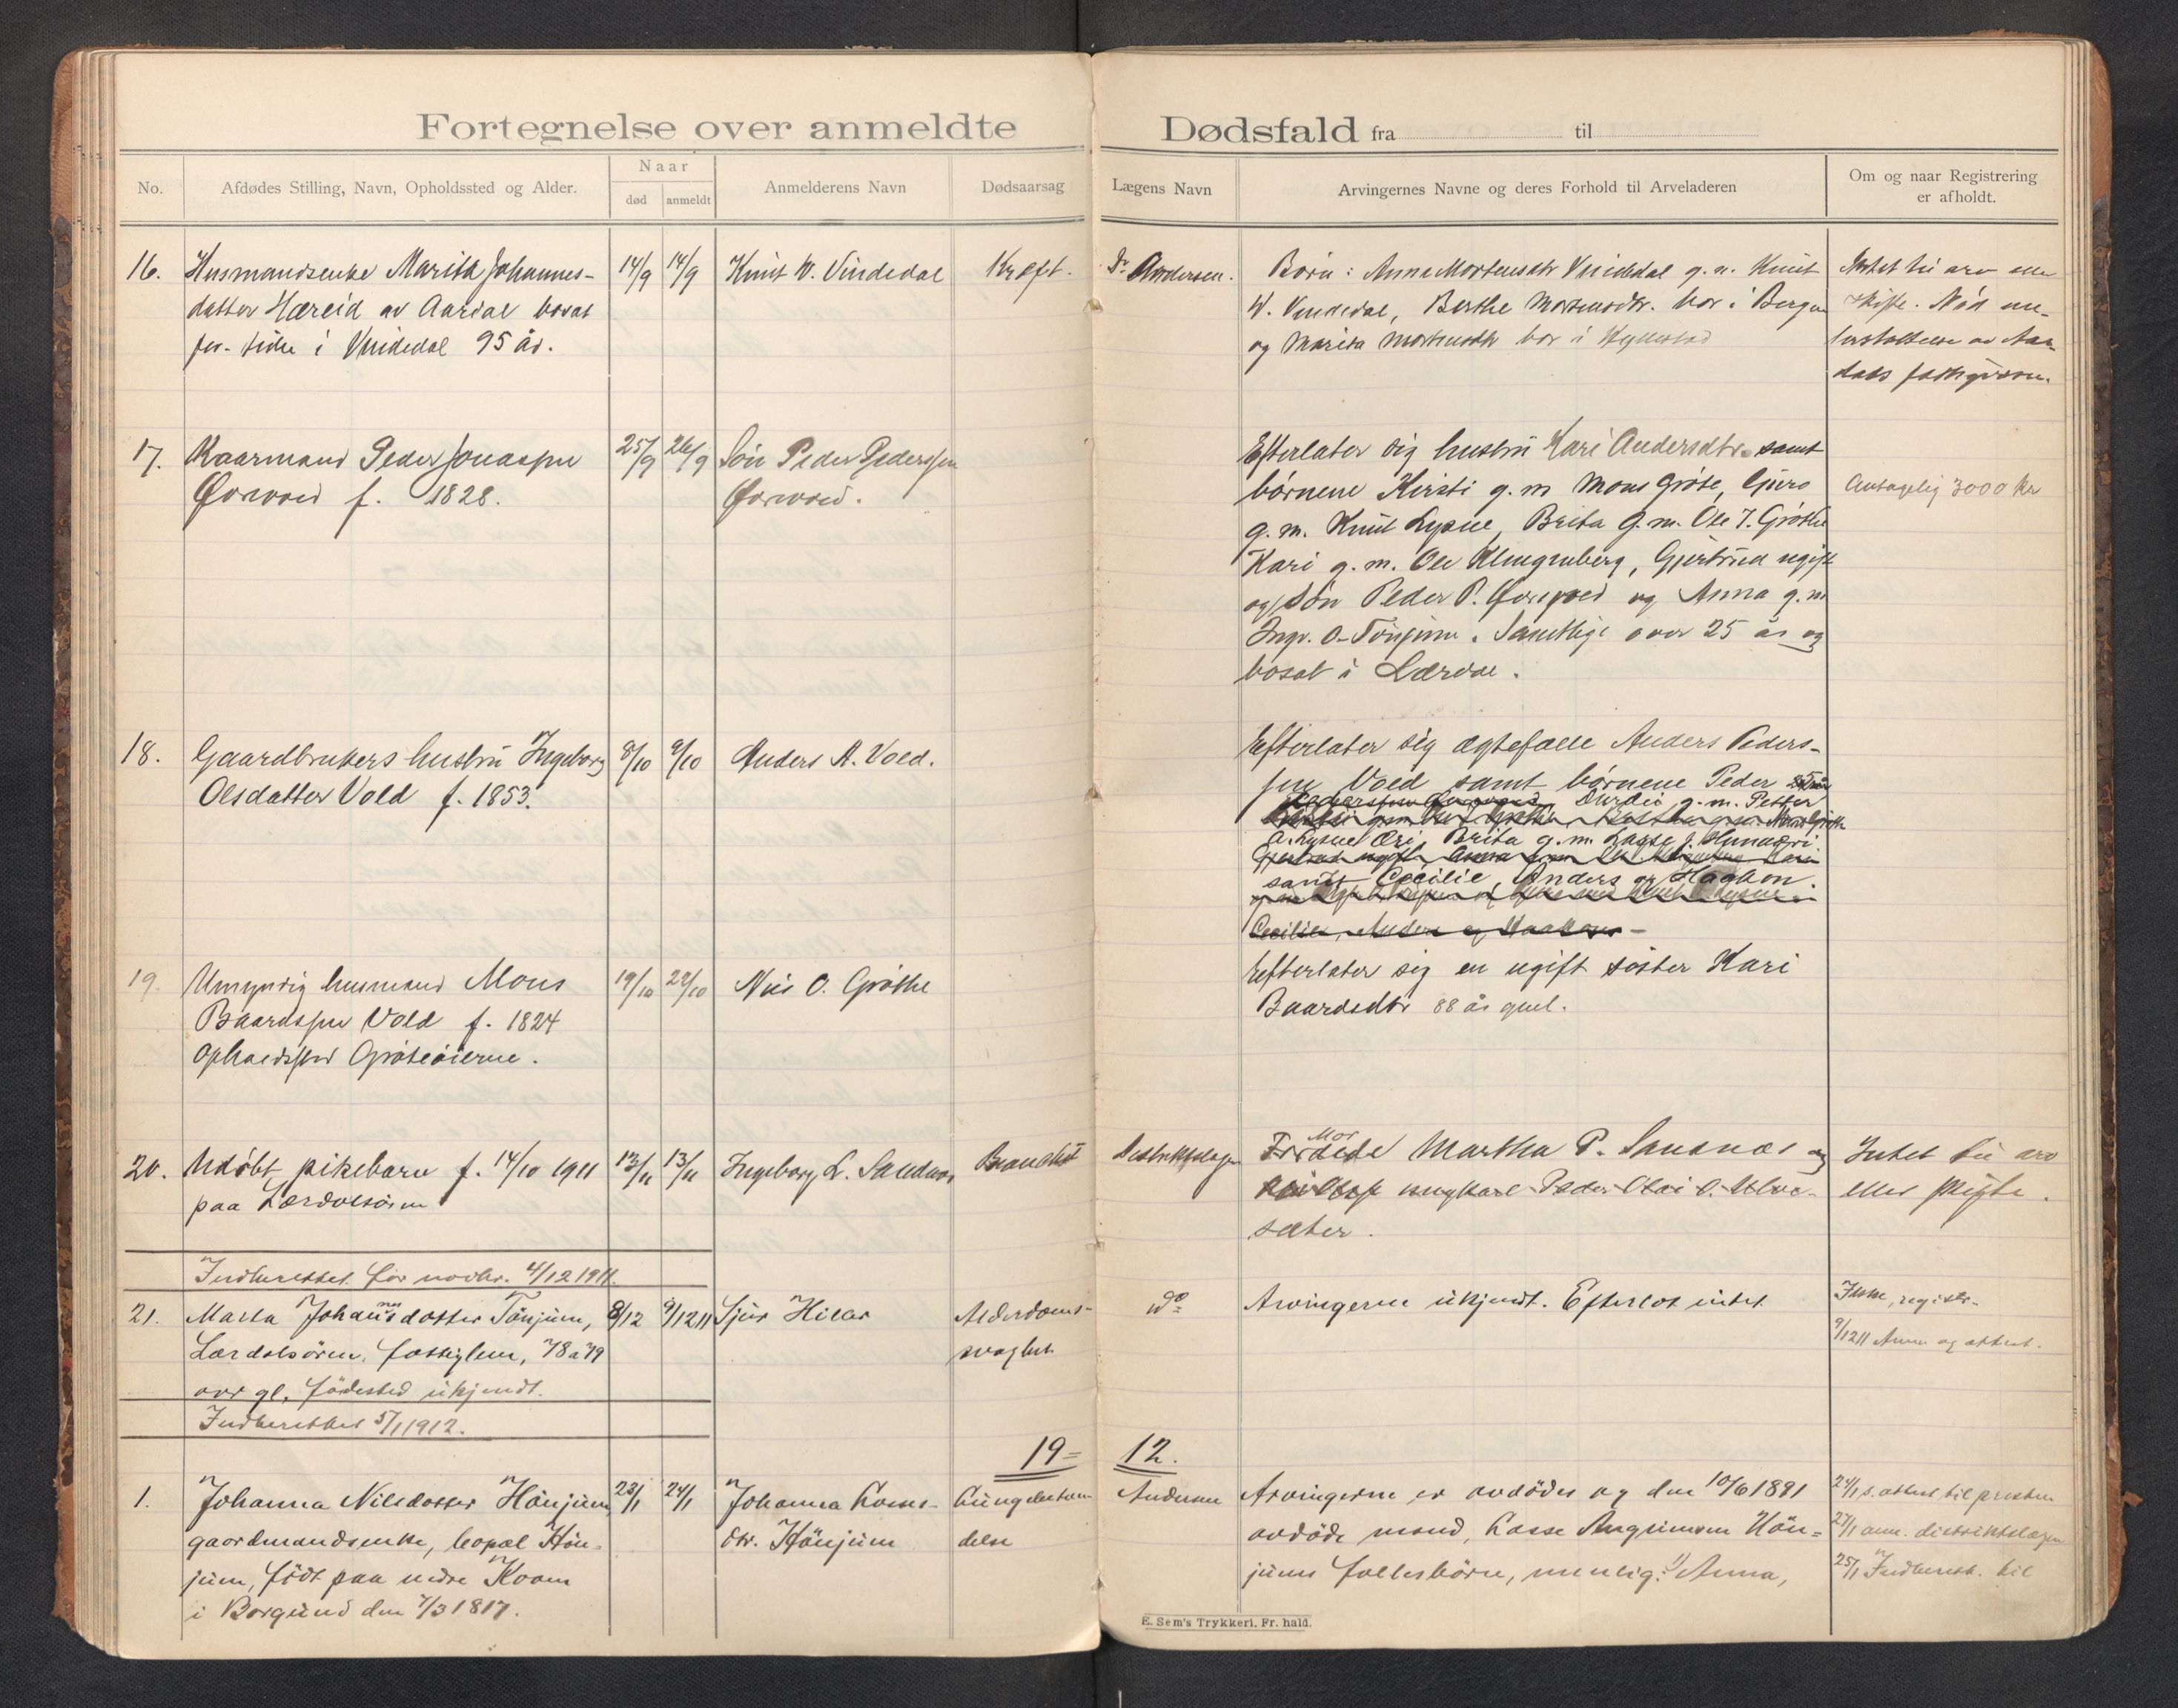 Fortegnelse over anmeldte Dødsfald fra til
No. Afdødes Stilling, Navn, Opholdssted og Alder. Naar død anmeldt Anmelderens Navn Dødsaarsag Lægens Navn Arvingernes Navne og deres Forhold til Arveladeren Om og naar Registrering er afholdt.
16. Husmandsenke Marith Johannes- 14/9 14/9 Knut W. Vindedal Kræft. Dr. Andersen.
datter Hæreid av Aardal bosat
i Vindedal 95 år.
Børn: Anna Mortensdtr Vindedal g. m. Knut
W. Vindedal, Berthe Mortensdtr. bor i Bergen
og Marita Mortensdtr bor i Hyllestad
Intet til arv eller
skifte. Nød un-
derstøttelse av Aar-
dals
17. Kaarmand Peder Jonassen 25/9 26/9 Søn Peder Pederssen
Øvrevold f. 1828. Øvrevold.
Efterlater sig hustru Kari Andersdtr. samt
børnene Kirsti g. m Mons Grøte, Guro
g. m. Knut Lysne, Brita g. m. Ole J. Grøthe
Kari g. m. Ole Klingenberg, Gjertrud ugift
og søn Peder P. Øvrevold og Anna g. m
Ingv. O. Tønjum. Samtlige over 25 år og
bosat i Lærdal.
Antagelig 3000 kr
18. Gaardbrukers hustru Ingeborg 8/10 9/10 Anders A. Vold.
Olsdatter Vold f. 1853.
Efterlater sig ægtefælle Anders Peders-
sen Vold samt børnene Peder
Durdei g. m. Petter
A. Lysne Øri, Brita g. m. Lasse J. Hunderi
samt Cecilie, Anders og Haakon.
Cecilie, Anders og Haakon
19. Umyndig husmand Mons 19/10 22/10 Nils O. Grøthe
Baardssen Vold f. 1824
opholdssted Grøteøierne.
Efterlater sig en ugift søster Kari
Baardsdtr 88 år gml.
20. Udøbt pikebarn f. 14/10 1911 13/11 13/11 Ingeborg L. Sandnes Bronchit Distriktslægen
paa Lærdalsøren
Mor
Martha P. Sandnæs og
ungkarl Peder Olai O. Ulve-
sæter.
Intet til arv
eller skifte.
Indberettet for novbr. 4/12 1911.
21. Marta Johannesdatter Tönjum, 8/12 9/12 11 Sjur Hiller Alderdoms- do
Lærdalsören, fattiglem, 78 a 79 svaghet
aar gl., födested ukjendt.
Arvingerne ukjendt. Efterlot intet
9/12 11 Anm. og attest.
Indberettet 5/1 1912.
19= 12.
1. Johanna Nilsdatter Hönjum, 23/1 24/1 Johanna Lasse- Lungebetæn- Andersen
gaardmandsenke, bopæl Hön- dtr. Hönjum delse
jum, födt paa nedre Kvam
i Borgund den 7/3 1817.
Arvingerne er avdödes og den 10/6 1891
avdöde mand, Lasse Angrimson Hön-
jums fællesbörn, nemlig: 1) Anna,
24/1 s. attest til presten
27/1 anm. distriktslægen
25/1 Indberett. til
E. Sem's Trykkeri, Fr. hald.